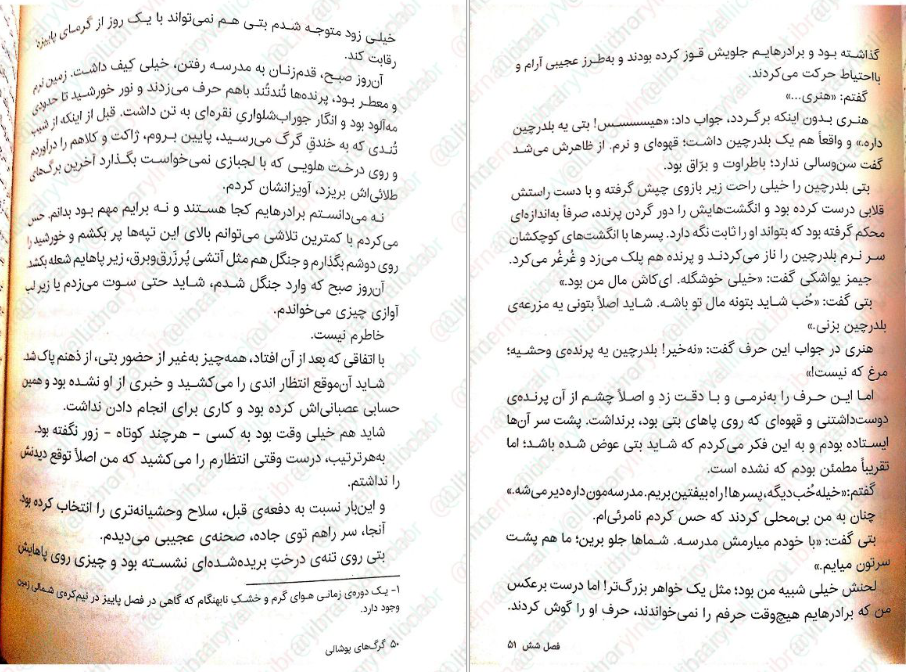 خیلی زود متوجه شدم بتی هم نمی‌تواند با یک روز از گرمای پاییزه
رقابت کند.
آن‌روز صبح، قدم‌زنان به مدرسه رفتن، خیلی کیف داشت. زمین نرم
و معطر بود، پرنده‌ها تُندتُند باهم حرف می‌زدند و نور خورشید تا حدودی
مه‌آلود بود و انگار جوراب‌شلواریِ نقره‌ای به تن داشت. قبل از اینکه از شیب
تُندی که به خندقِ گرگ می‌رسید، پایین بروم، ژاکت و کلاهم را درآوردم
و روی درخت هلویی که با لجبازی نمی‌خواست بگذارد آخرین برگ‌های
طلائی‌اش بریزد، آویزانشان کردم.
نه می‌دانستم برادرهایم کجا هستند و نه برایم مهم بود بدانم. حس
می‌کردم با کمترین تلاشی می‌توانم بالای این تپه‌ها پر بکشم و خورشید را
روی دوشم بگذارم و جنگل هم مثل آتشی پُرزرق‌وبرق، زیر پاهایم شعله بکشد.
آن‌روز صبح که وارد جنگل شدم، شاید حتی سوت می‌زدم یا زیر لب
آوازی چیزی می‌خواندم.
خاطرم نیست.
با اتفاقی که بعد از آن افتاد، همه‌چیز به‌غیر از حضور بتی، از ذهنم پاک شد.
شاید آن‌موقع انتظار اندی را می‌کشید و خبری از او نشده بود و همین
حسابی عصبانی‌اش کرده بود و کاری برای انجام دادن نداشت.
شاید هم خیلی وقت بود به کسی - هرچند کوتاه - زور نگفته بود.
به‌هرترتیب، درست وقتی انتظارم را می‌کشید که من اصلاً توقع دیدنش
را نداشتم.
و این‌بار نسبت به دفعه‌ی قبل، سلاح وحشیانه‌تری را انتخاب کرده بود.
آنجا، سر راهم توی جاده، صحنه‌ی عجیبی می‌دیدم.
بتی روی تنه‌ی درختِ بریده‌شده‌ای نشسته بود و چیزی روی پاهایش
۱- یک دوره‌ی زمانی هوای گرم و خشکِ نابهنگام که گاهی در فصل پاییز در نیم‌کره‌ی شمالی زمین
وجود دارد.
۵۰ گرگ‌های پوشالی
گذاشته بود و برادرهایم جلویش قوز کرده بودند و به‌طرز عجیبی آرام و
بااحتیاط حرکت می‌کردند.
گفتم: «هنری...»
هنری بدون اینکه برگردد، جواب داد: «هیسسسس! بتی یه بلدرچین
داره.» و واقعاً هم یک بلدرچین داشت؛ قهوه‌ای و نرم. از ظاهرش می‌شد
گفت سن‌وسالی ندارد؛ باطراوت و برّاق بود.
بتی بلدرچین را خیلی راحت زیر بازوی چپش گرفته و با دست راستش
قلابی درست کرده بود و انگشت‌هایش را دور گردن پرنده، صرفاً به‌اندازه‌ای
محکم گرفته بود که بتواند او را ثابت نگه دارد. پسرها با انگشت‌های کوچکشان
سر نرم بلدرچین را ناز می‌کردند و پرنده هم پلک می‌زد و غُرغُر می‌کرد.
جیمز یواشکی گفت: «خیلی خوشگله. ای‌کاش مال من بود.»
بتی گفت: «خُب شاید بتونه مال تو باشه. شاید اصلاً بتونی یه مزرعه‌ی
بلدرچین بزنی.»
هنری در جواب این حرف گفت: «نه‌خیر! بلدرچین یه پرنده‌ی وحشیه؛
مرغ که نیست!»
اما این حرف را به‌نرمی و با دقت زد و اصلاً چشم از آن پرنده‌ی
دوست‌داشتنی و قهوه‌ای که روی پاهای بتی بود، برنداشت. پشت سر آن‌ها
ایستاده بودم و به این فکر می‌کردم که شاید بتی عوض شده باشد؛ اما
تقریباً مطمئن بودم که نشده است.
گفتم: «خیله‌خُب دیگه، پسرها! راه بیفتین بریم. مدرسه‌مون داره دیر می‌شه.»
چنان به من بی‌محلی کردند که حس کردم نامرئی‌ام.
بتی گفت: «با خودم میارمش مدرسه. شماها جلو برین؛ ما هم پشت
سرتون میایم.»
لحنش خیلی شبیه من بود؛ مثل یک خواهر بزرگ‌تر! اما درست برعکس
من که برادرهایم هیچ‌وقت حرفم را نمی‌خواندند، حرف او را گوش کردند.
فصل شش ۵۱